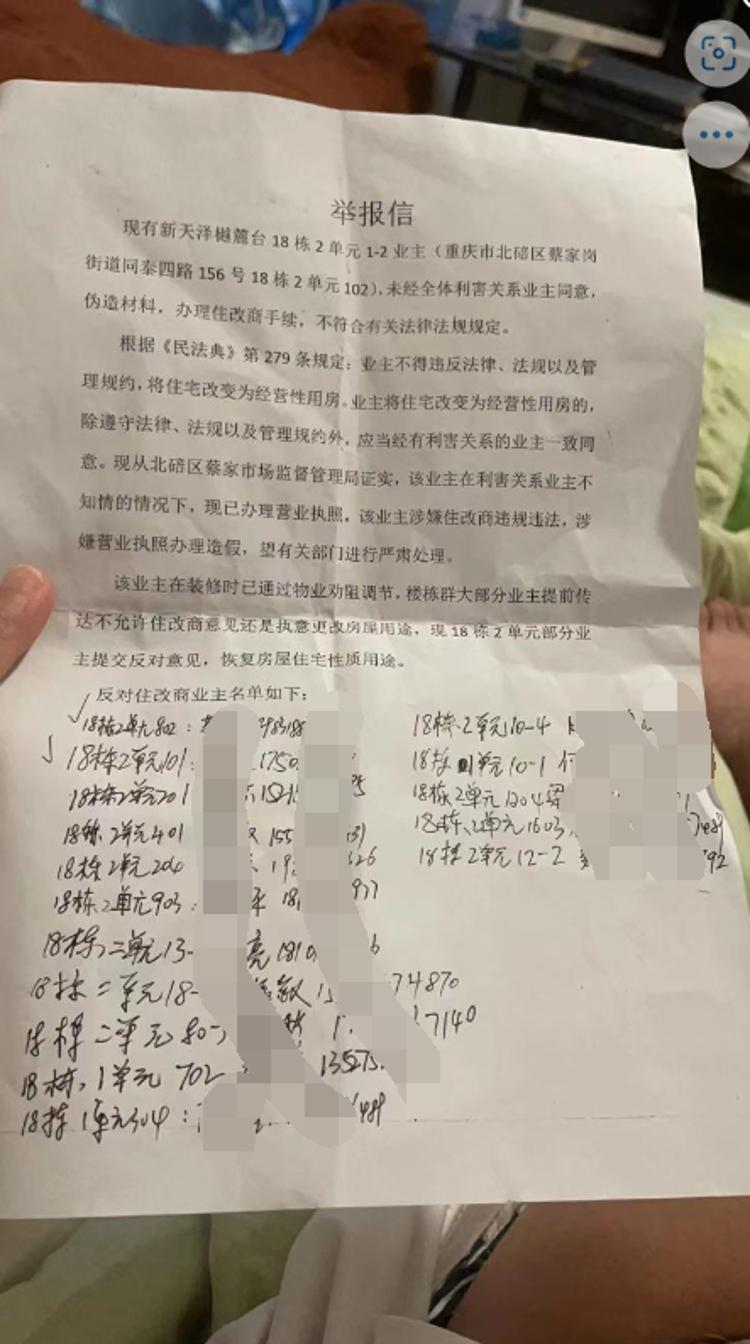 举报信
现有新天泽樾麓台18栋2单元1-2业主（重庆市北碚区蔡家岗
街道同泰四路156号18栋2单元102），未经全体利害关系业主同意，
伪造材料，办理住改商手续，不符合有关法律法规规定。
根据《民法典》第279条规定：业主不得违反法律、法规以及管
理规约，将住宅改变为经营性用房。业主将住宅改变为经营性用房的，
除遵守法律、法规以及管理规约外，应当经有利害关系的业主一致同
意。现从北碚区蔡家市场监督管理局证实，该业主在利害关系业主不
知情的情况下，现已办理营业执照，该业主涉嫌住改商违规违法，涉
嫌营业执照办理造假，望有关部门进行严肃处理。
该业主在装修时已通过物业劝阻调节，楼栋群大部分业主提前传
达不允许住改商意见还是执意更改房屋用途，现18栋2单元部分业
主提交反对意见，恢复房屋住宅性质用途。
反对住改商业主名单如下：
18栋2单元802：
18栋2单元101：1750
18栋2单元201 1521
18栋2单元401 155 131
18栋2单元204 19 626
18栋2单元903：181 977
18栋二单元13- 亮1810 6
18栋二单元18- 敏1 74870
18栋二单元80 1 7140
18栋，1单元702 135275
18栋1单元304： 489
18栋2单元10-4
18栋1单元10-1 付
18栋2单元1204
18栋2单元1603
18栋2单元12-2 92